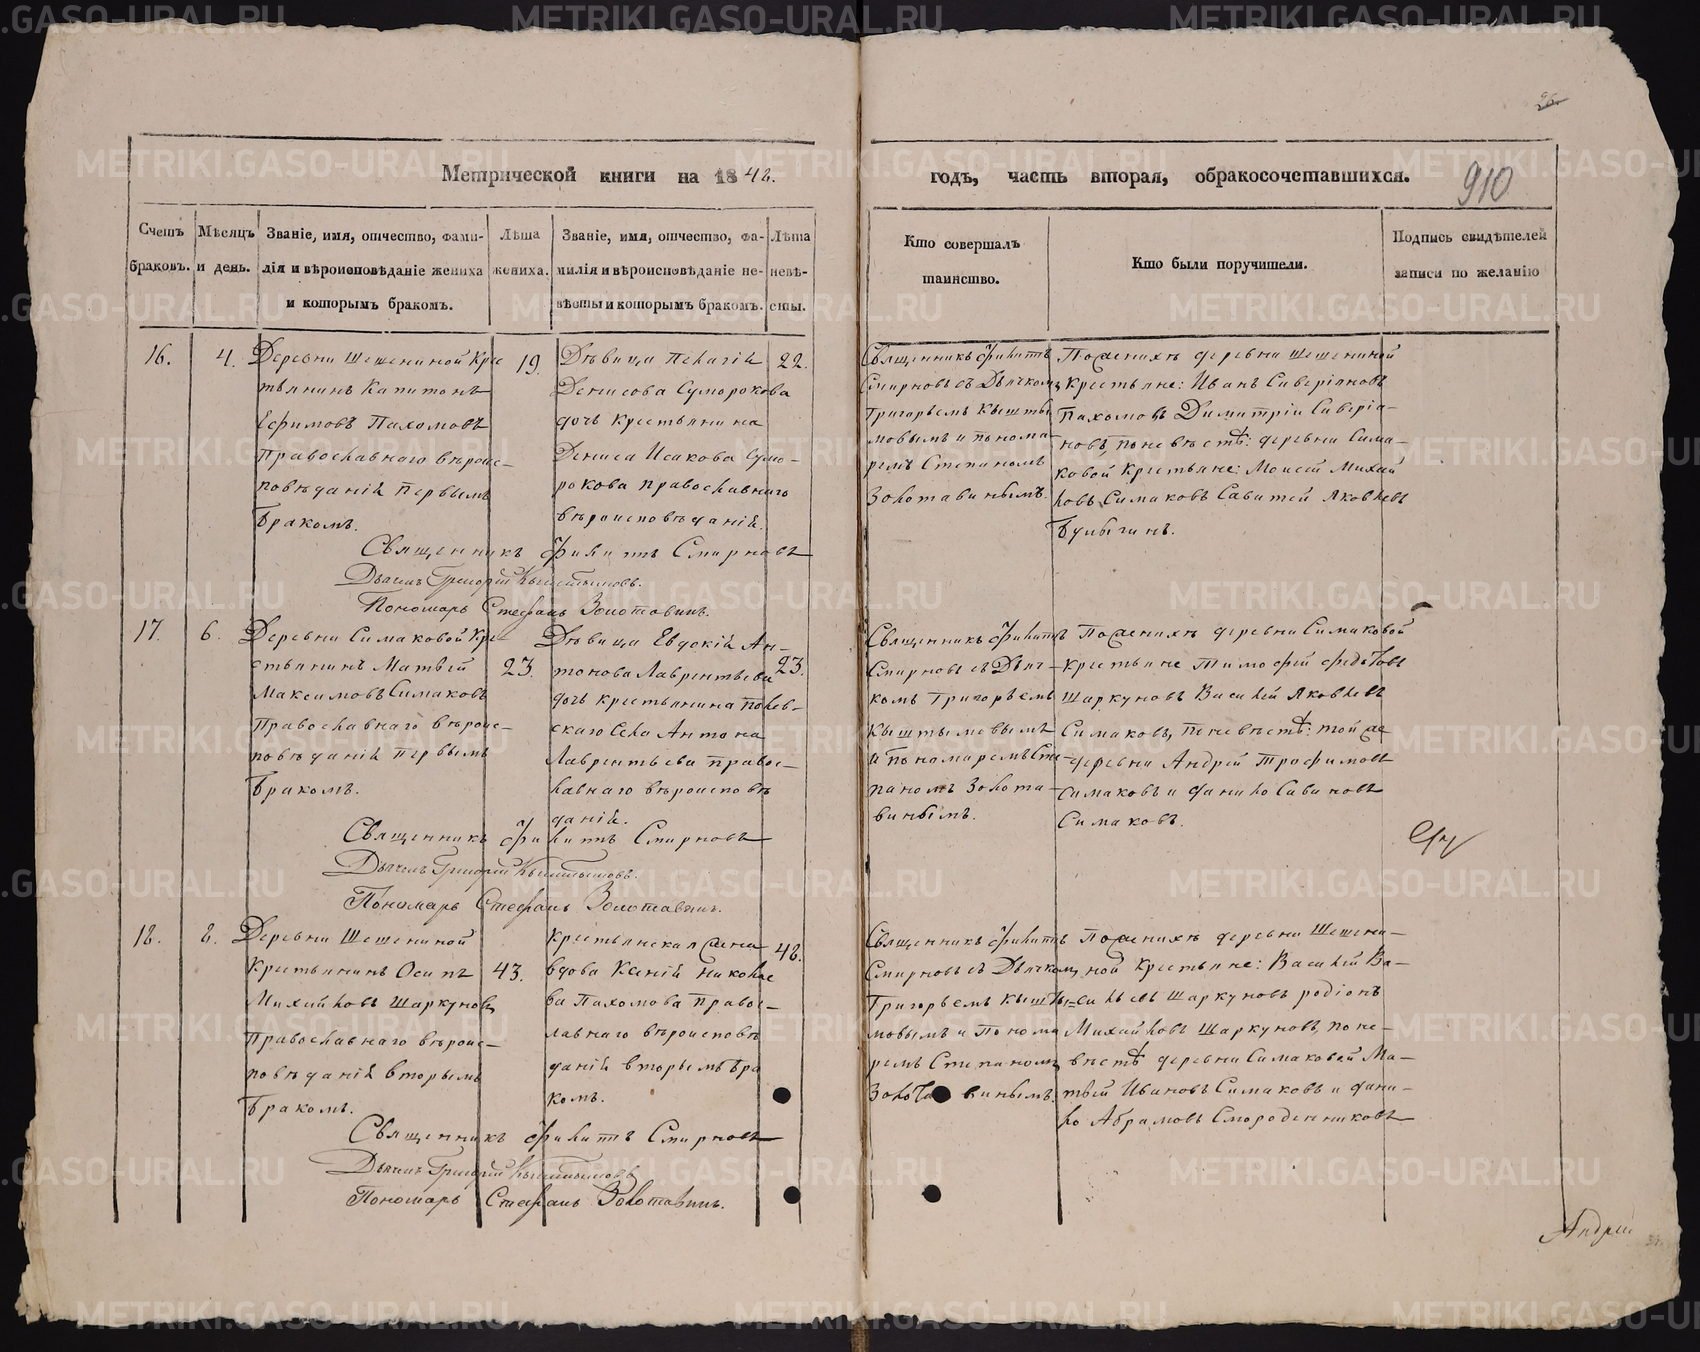 METRIKI.GASO-URAL.RU
Метрической книги на 1842.
годъ, часть вторая, обракосочетавшихся.
910
Счетъ браковъ.
Мѣсяцъ и день.
Званіе, имя, отчество, фами-
лія и вѣроисповѣданіе жениха
и которымъ бракомъ.
Лѣта
жениха.
Званіе, имя, отчество, фа-
милія и вѣроисповѣданіе не-
вѣсты и которымъ бракомъ.
Лѣта
невѣ-
сты.
Кто совершалъ
таинство.
Кто были поручители.
Подпись свидѣтелей
записи по желанію
16.
4.
Деревни Шешениной Кре
тьянинъ Капитонъ
Ефимовъ Пахомовъ
Православнаго вѣроис-
повѣданій первымъ
бракомъ.
19.
Дѣвица Пелагія
Денисова Суморокова
дочь крестьянина
Дениса Исакова Сумо-
рокова православнаго
вѣроисповѣданій.
22.
Священникъ Филиппъ
Смирновъ съ Дьячкомъ
Григорьемъ Кышты
мовымъ и понома-
ремъ Степаномъ
Золотавинымъ.
По женихѣ деревни Шешениной
крестьяне: Иванъ Сиверіяновъ
Пахомовъ Димитріи Сиверіа-
новъ, по невѣстѣ: деревни Сима-
ковой Крестьяне: Моисей Михай
ловъ Симаковъ Саватей Яковлевъ
Булыгинъ.
Священникъ Филиппъ Смирновъ
Дьячекъ Григорій Кыштымовъ.
Пономарь Стефанъ Золотавинъ.
17.
6.
Деревни Симаковой Кре
стьянинъ Матвей
Максимовъ Симаковъ
Православнаго вѣроис-
повѣданій первымъ
бракомъ.
23.
Дѣвица Евдокія Ан-
тонова Лаврентьева
дочь крестьянина Полев-
скаго Села Антона
Лаврентьева правос-
лавнаго вѣроисповѣ
даній.
23.
Священникъ Филиппъ
Смирновъ съ Дьяч-
комъ Григорьемъ
Кыштымовымъ
и Пономаремъ Сте-
паномъ Золота-
винымъ.
По женихѣ деревни Симаковой
крестьяне Тимофей Федотовъ
Шаркуновъ Василей Яковлевъ
Симаковъ, по невѣстѣ: той же
деревни Андрей Трофимовъ
Симаковъ и Данило Савиновъ
Симаковъ.
Священникъ Филиппъ Смирновъ
Дьячекъ Григорій Кыштымовъ.
Пономарь Стефанъ Золотавинъ.
18.
8.
Деревни Шешениной
Крестьянинъ Осипъ
Михайловъ Шаркуновъ
Православнаго вѣроис-
повѣданій вторымъ
бракомъ.
43.
Крестьянская жена
вдова Ксенія Николае
ва Пахомова Правос-
лавнаго вѣроисповѣ
даній вторымъ бра
комъ.
48.
Священникъ Филиппъ
Смирновъ съ Дьячкомъ
Григорьемъ Кышты=
мовымъ и Понома
ремъ Степаномъ
Золотавинымъ.
По женихѣ деревни Шешени-
ной Крестьяне: Василей Ва-
сильевъ Шаркуновъ родіонъ
Михайловъ Шаркуновъ, по не-
вѣстѣ деревни Симаковой Ма-
твей Ивановъ Симаковъ и Дани-
ло Абрамовъ Смородинниковъ
Священникъ Филиппъ Смирновъ
Дьячекъ Григорій Кыштымовъ
Пономарь Стефанъ Золотавинъ.
Андрей